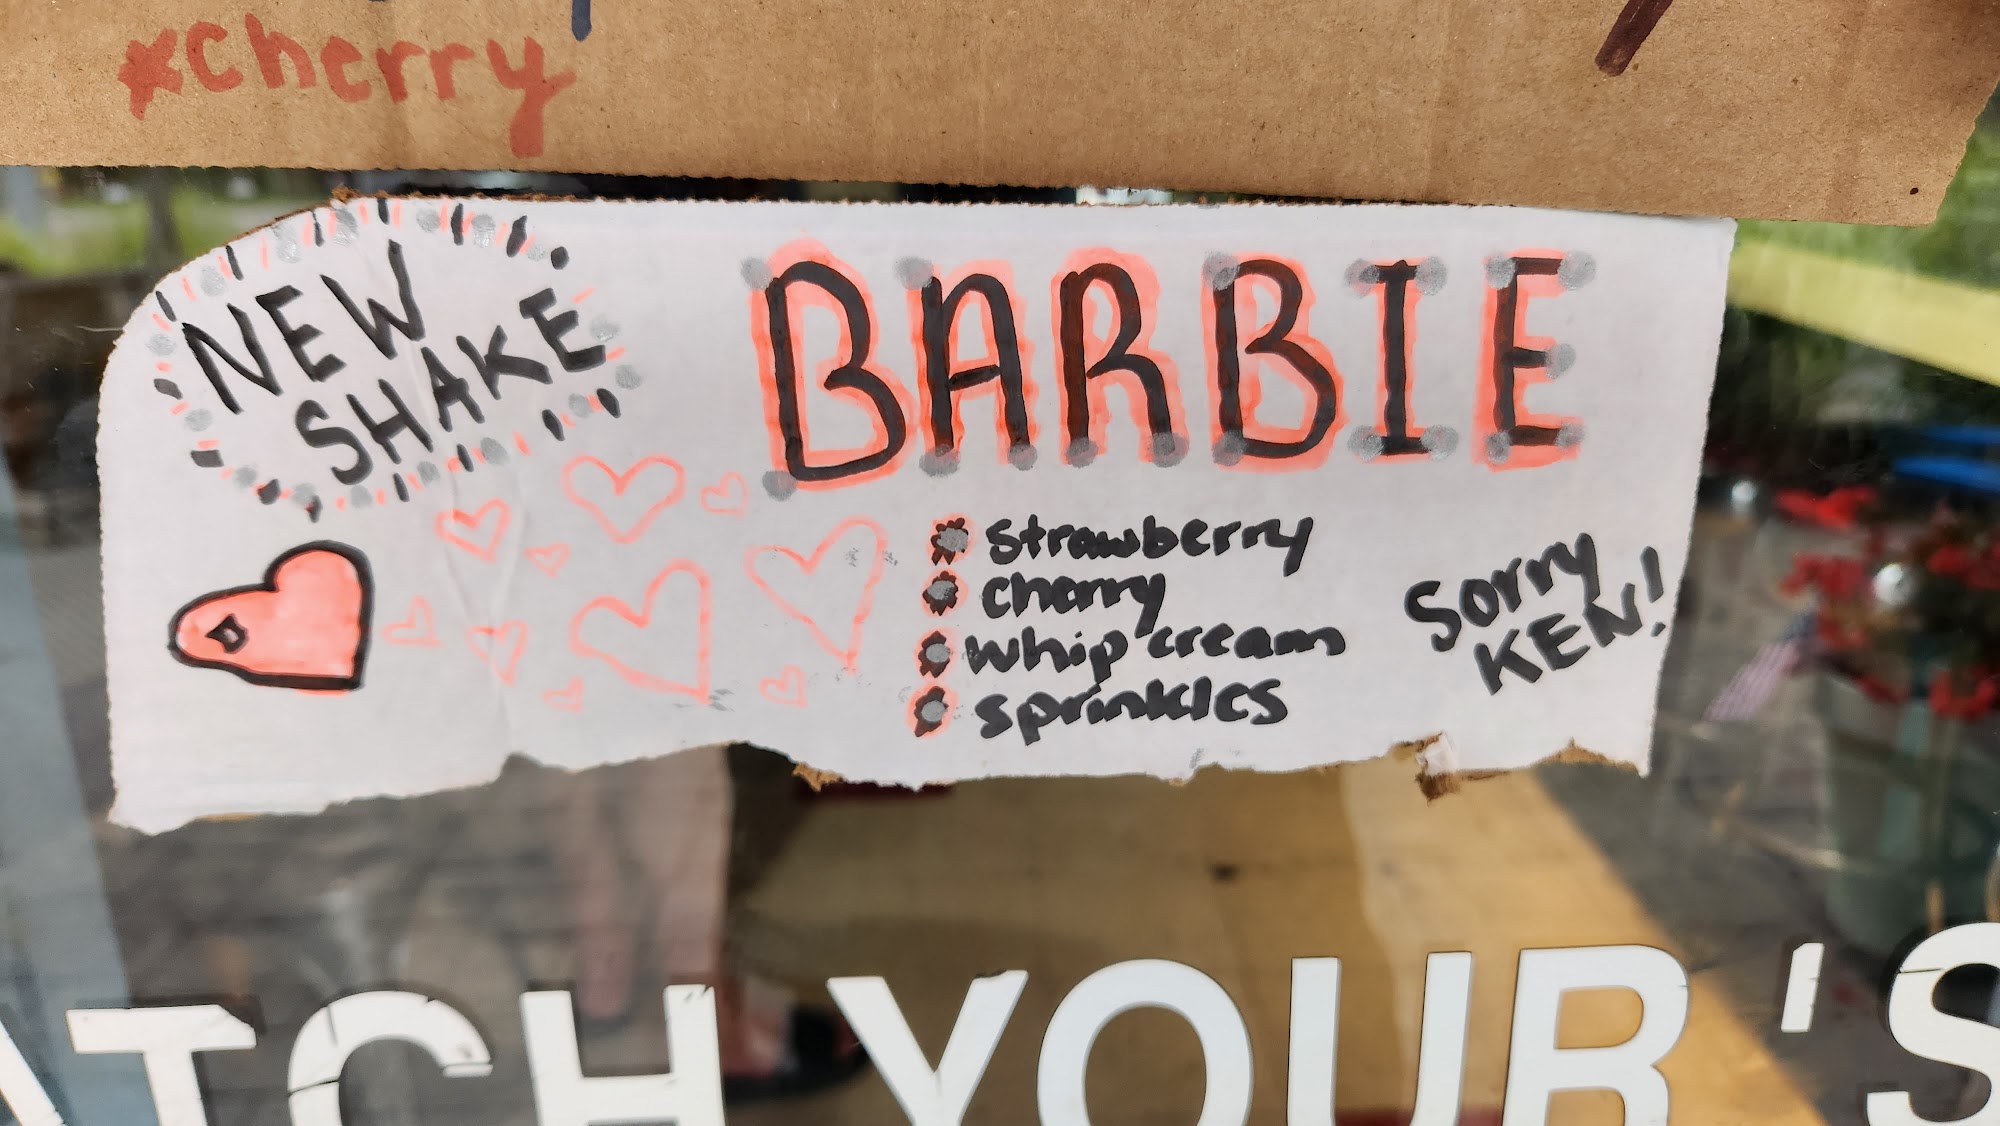 *cherry
NEW
SHAKE
BARBIE
strawberry
cherry
whip cream
sprinkles
Sorry
KEN!
ATCH YOUR'S